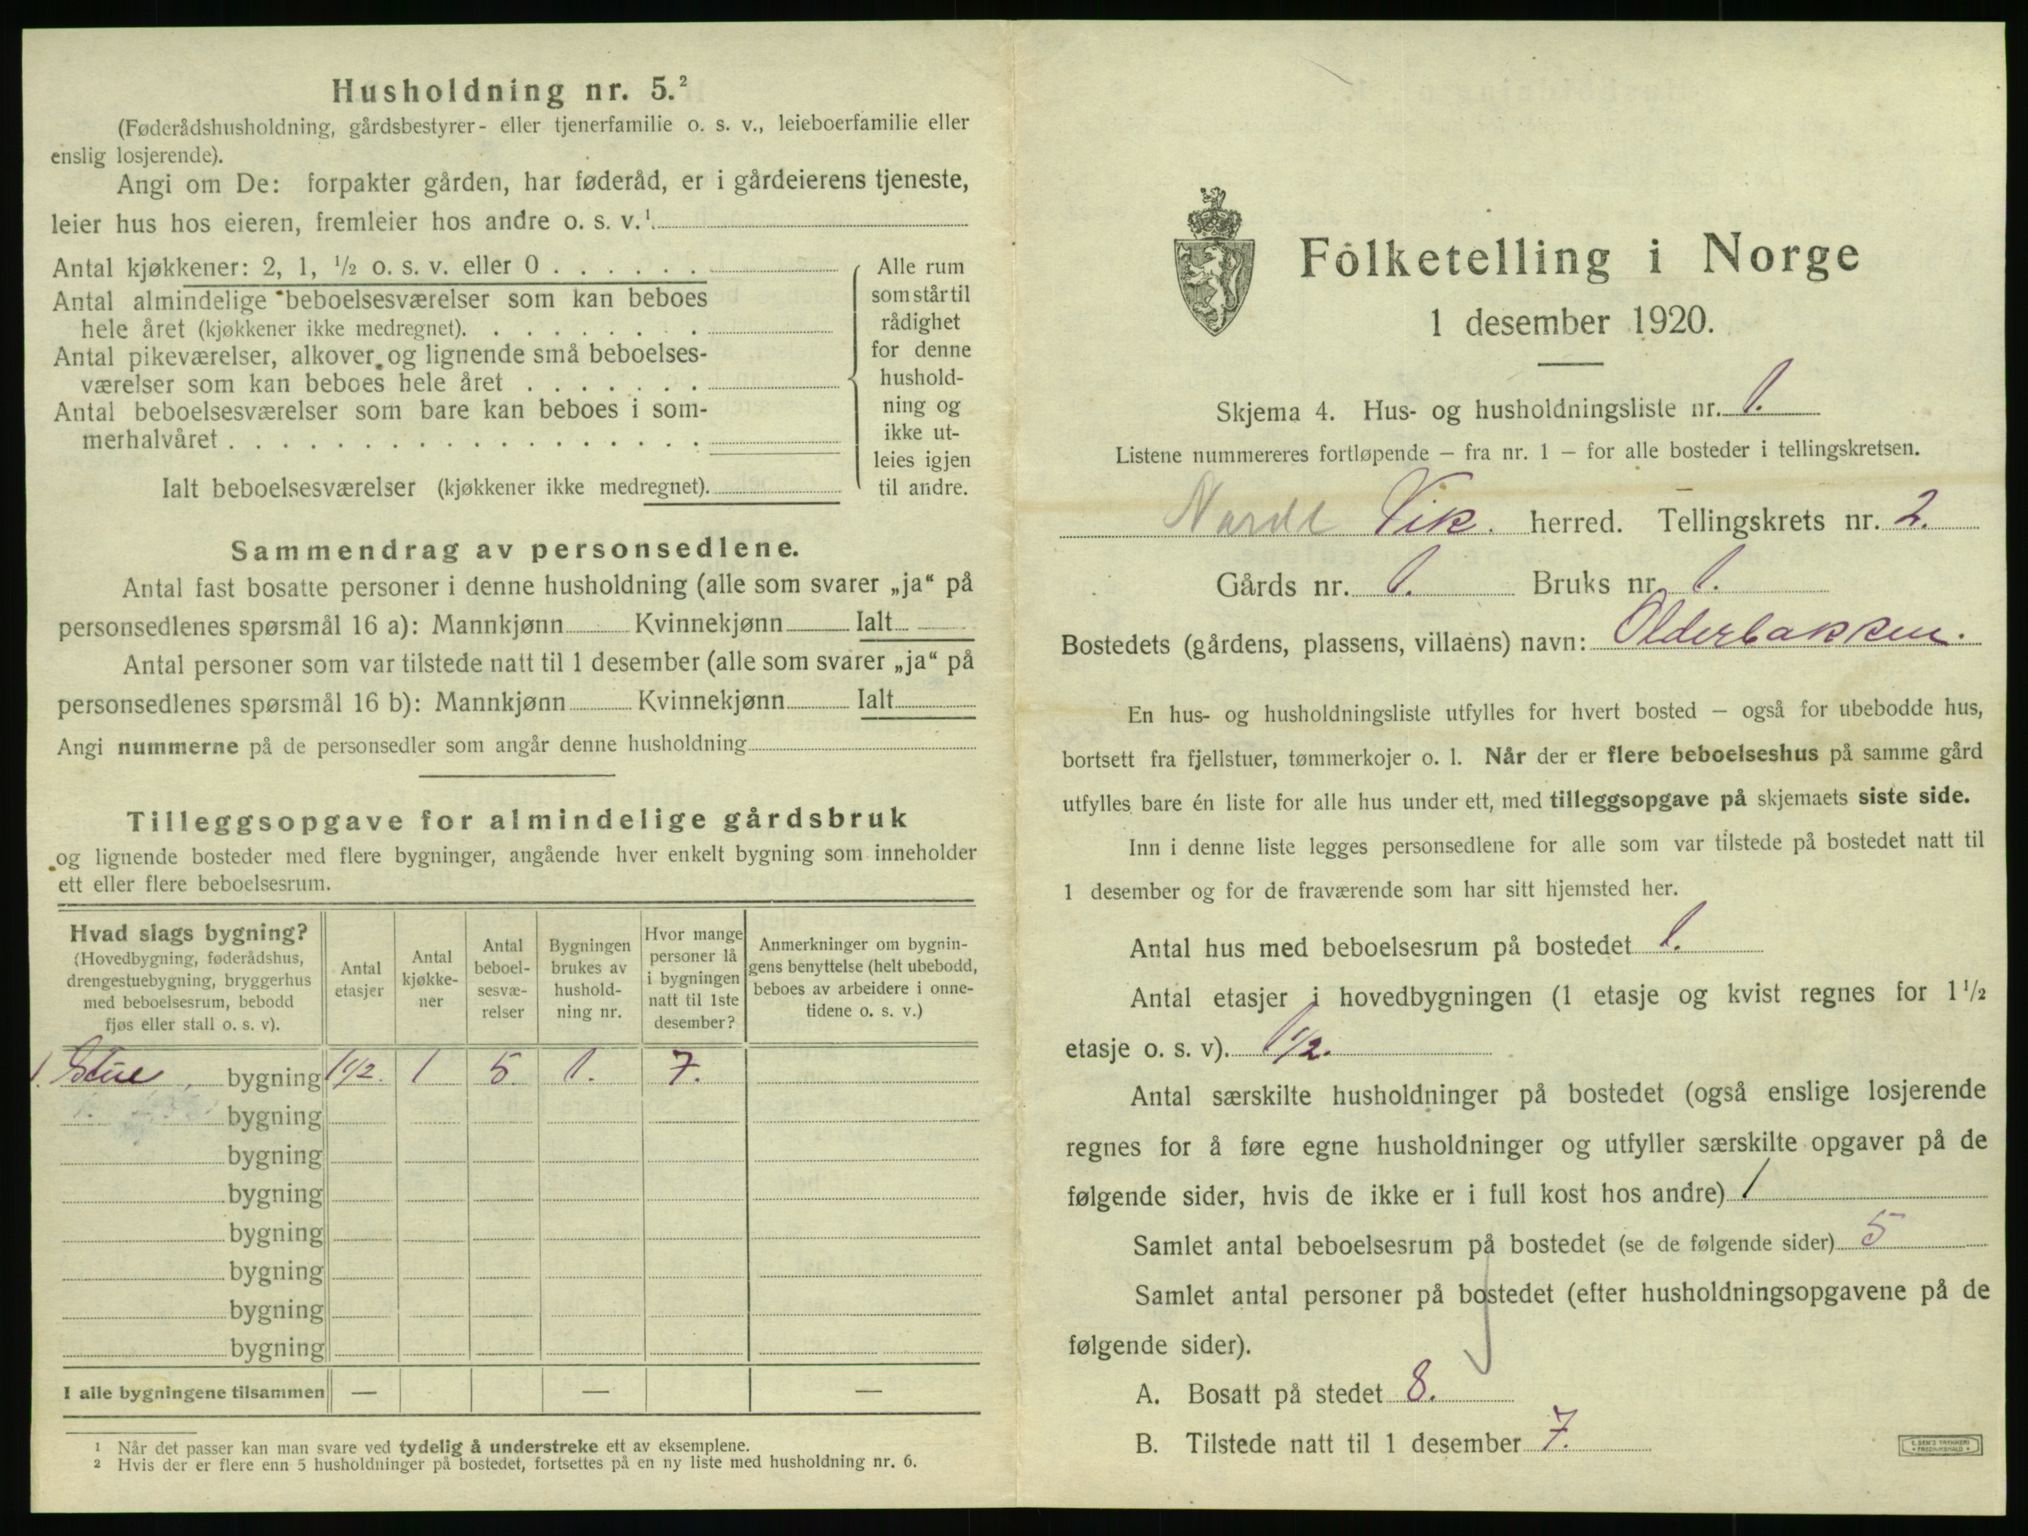 Husholdning nr. 5.²
(Føderådshusholdning, gårdsbestyrer- eller tjenerfamilie o. s. v., leieboerfamilie eller
enslig losjerende).
Angi om De: forpakter gården, har føderåd, er i gårdeierens tjeneste,
leier hus hos eieren, fremleier hos andre o. s. v.¹
Antal kjøkkener: 2, 1, ½ o. s. v. eller 0 . . . . . .
Antal almindelige beboelsesværelser som kan beboes
hele året (kjøkkener ikke medregnet). . . . . . . . .
Antal pikeværelser, alkover og lignende små beboelses-
værelser som kan beboes hele året . . . . . . .
Antal beboelsesværelser som bare kan beboes i som-
merhalvåret . . . . . . . . . . . . . . . . . .
Ialt beboelsesværelser (kjøkkener ikke medregnet).
Alle rum
som står til
rådighet
for denne
hushold-
ning og
ikke ut-
leies igjen
til andre.
Sammendrag av personsedlene.
Antal fast bosatte personer i denne husholdning (alle som svarer „ja“ på
personsedlenes spørsmål 16 a): Mannkjønn Kvinnekjønn Ialt
Antal personer som var tilstede natt til 1 desember (alle som svarer „ja“ på
personsedlenes spørsmål 16 b): Mannkjønn Kvinnekjønn Ialt
Angi nummerne på de personsedler som angår denne husholdning
Tilleggsopgave for almindelige gårdsbruk
og lignende bosteder med flere bygninger, angående hver enkelt bygning som inneholder
ett eller flere beboelsesrum.
Hvad slags bygning?
(Hovedbygning, føderådshus,
drengestuebygning, bryggerhus
med beboelsesrum, bebodd
fjøs eller stall o. s. v).
Antal
etasjer
Antal
kjøkke-
ner
Antal
beboel-
sesvæ-
relser
Bygningen
brukes av
hushold-
ning nr.
Hvor mange
personer lå
i bygningen
natt til 1ste
desember?
Anmerkninger om bygnin-
gens benyttelse (helt ubebodd,
beboes av arbeidere i onne-
tidene o. s. v.)
1. Stue bygning 1½. 1 5. 1. 7.
bygning
bygning
bygning
bygning
bygning
bygning
bygning
I alle bygningene tilsammen — — —
¹ Når det passer kan man svare ved tydelig å understreke ett av eksemplene.
² Hvis der er flere enn 5 husholdninger på bostedet, fortsettes på en ny liste med husholdning nr. 6.
Folketelling i Norge
1 desember 1920.
Skjema 4. Hus- og husholdningsliste nr. 1.
Listene nummereres fortløpende — fra nr. 1 — for alle bosteder i tellingskretsen.
Nordl Vik. herred. Tellingskrets nr. 2.
Gårds nr. 1. Bruks nr. 1.
Bostedets (gårdens, plassens, villaens) navn: Olderbakken.
En hus- og husholdningsliste utfylles for hvert bosted — også for ubebodde hus,
bortsett fra fjellstuer, tømmerkojer o. l. Når der er flere beboelseshus på samme gård
utfylles bare én liste for alle hus under ett, med tilleggsopgave på skjemaets siste side.
Inn i denne liste legges personsedlene for alle som var tilstede på bostedet natt til
1 desember og for de fraværende som har sitt hjemsted her.
Antal hus med beboelsesrum på bostedet 1.
Antal etasjer i hovedbygningen (1 etasje og kvist regnes for 1½
etasje o. s. v). 1½.
Antal særskilte husholdninger på bostedet (også enslige losjerende
regnes for å føre egne husholdninger og utfyller særskilte opgaver på de
følgende sider, hvis de ikke er i full kost hos andre) 1
Samlet antal beboelsesrum på bostedet (se de følgende sider) 5
Samlet antal personer på bostedet (efter husholdningsopgavene på de
følgende sider).
A. Bosatt på stedet 8.
B. Tilstede natt til 1 desember 7.